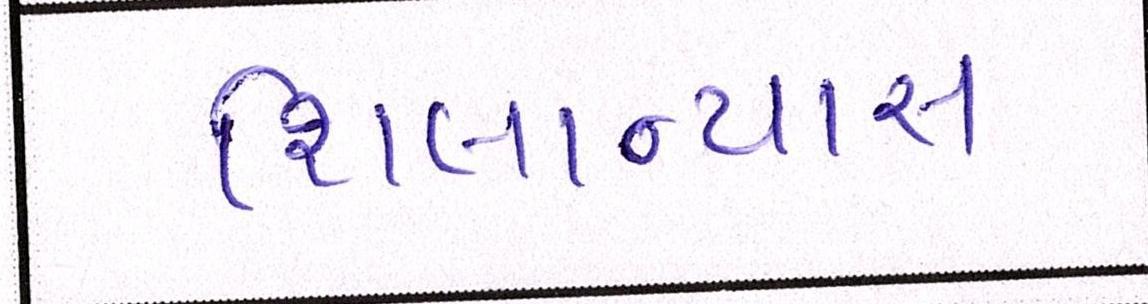 શિલાન્યાસ